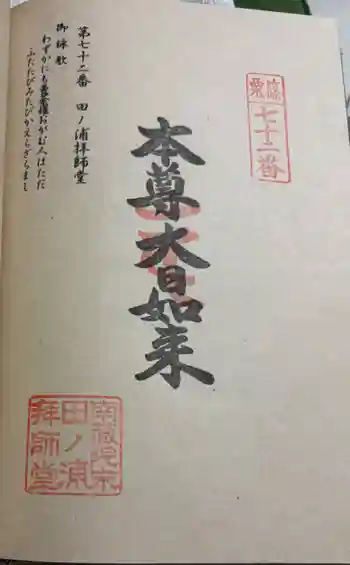 霊場
七十二番
本尊大日如来
第七十二番 田ノ浦拝師堂
御詠歌
わずかにも曼荼羅おがむ人はただ
ふたたびみたびかえらざらまし
田ノ浦
拝師堂